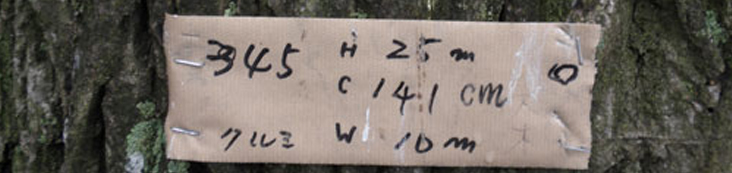 345 H 25m 0
C 141 cm
クルミ W 10m